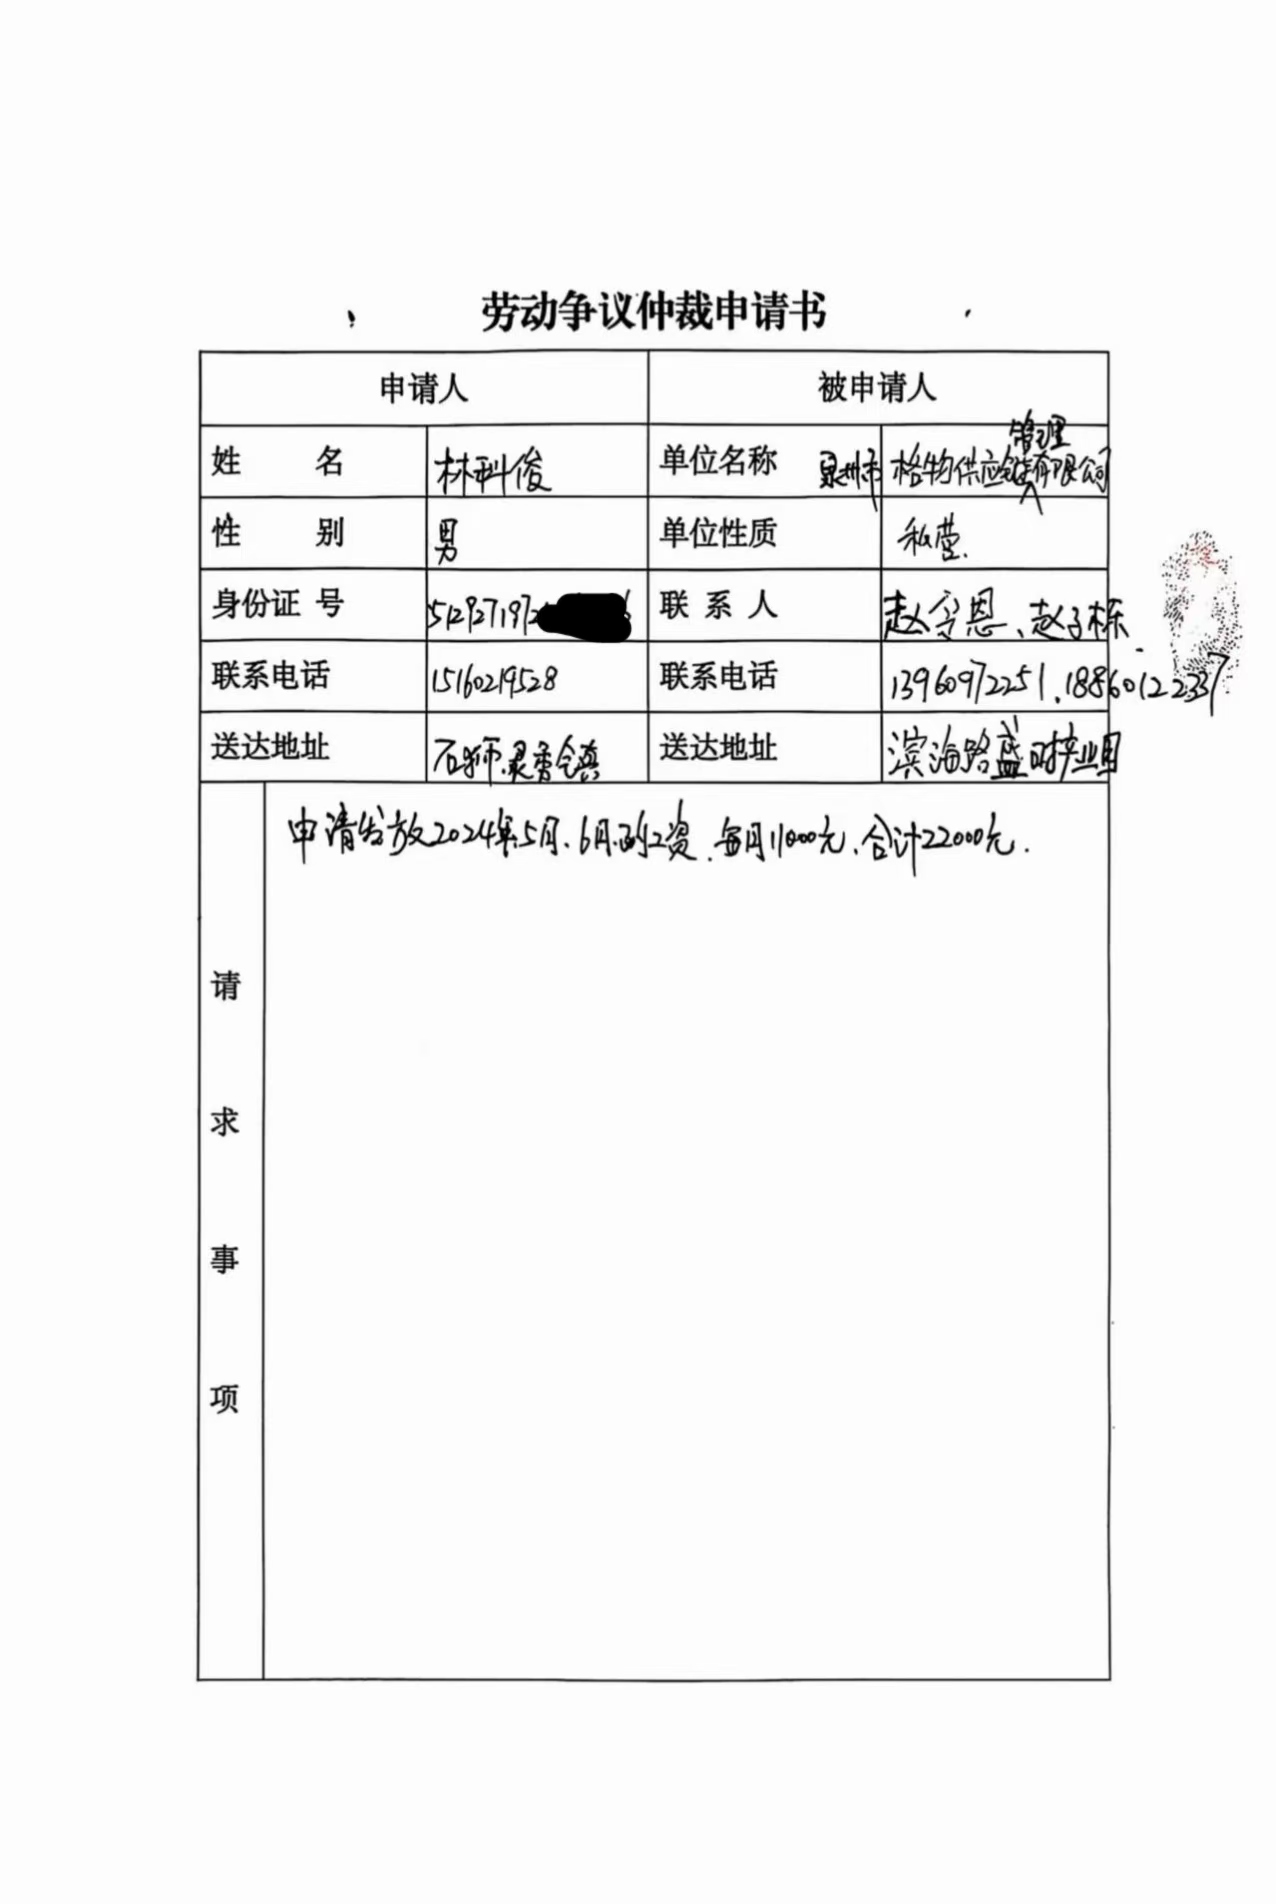 劳动争议仲裁申请书
申请人 被申请人
姓 名 林科俊 单位名称 泉州市格物供应链管理有限公司
性 别 男 单位性质 私营.
身份证 号 512927197 联 系 人 赵令恩、赵子栋.
联系电话 15160219528 联系电话 13960972251.18860122337
送达地址 石狮.灵秀镇 送达地址 滨海路盛时产业园
申请发放2024年5月、6月的工资.每月11000元、合计22000元.
请
求
事
项